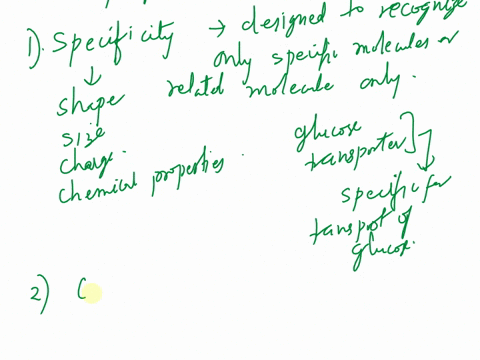 1). Specificity → designed to recognize
only specific molecules or
related molecule only.
↓
shape
size
charge.
chemical properties.
glucose
transporter
specific for
transport of
glucose.
2) (